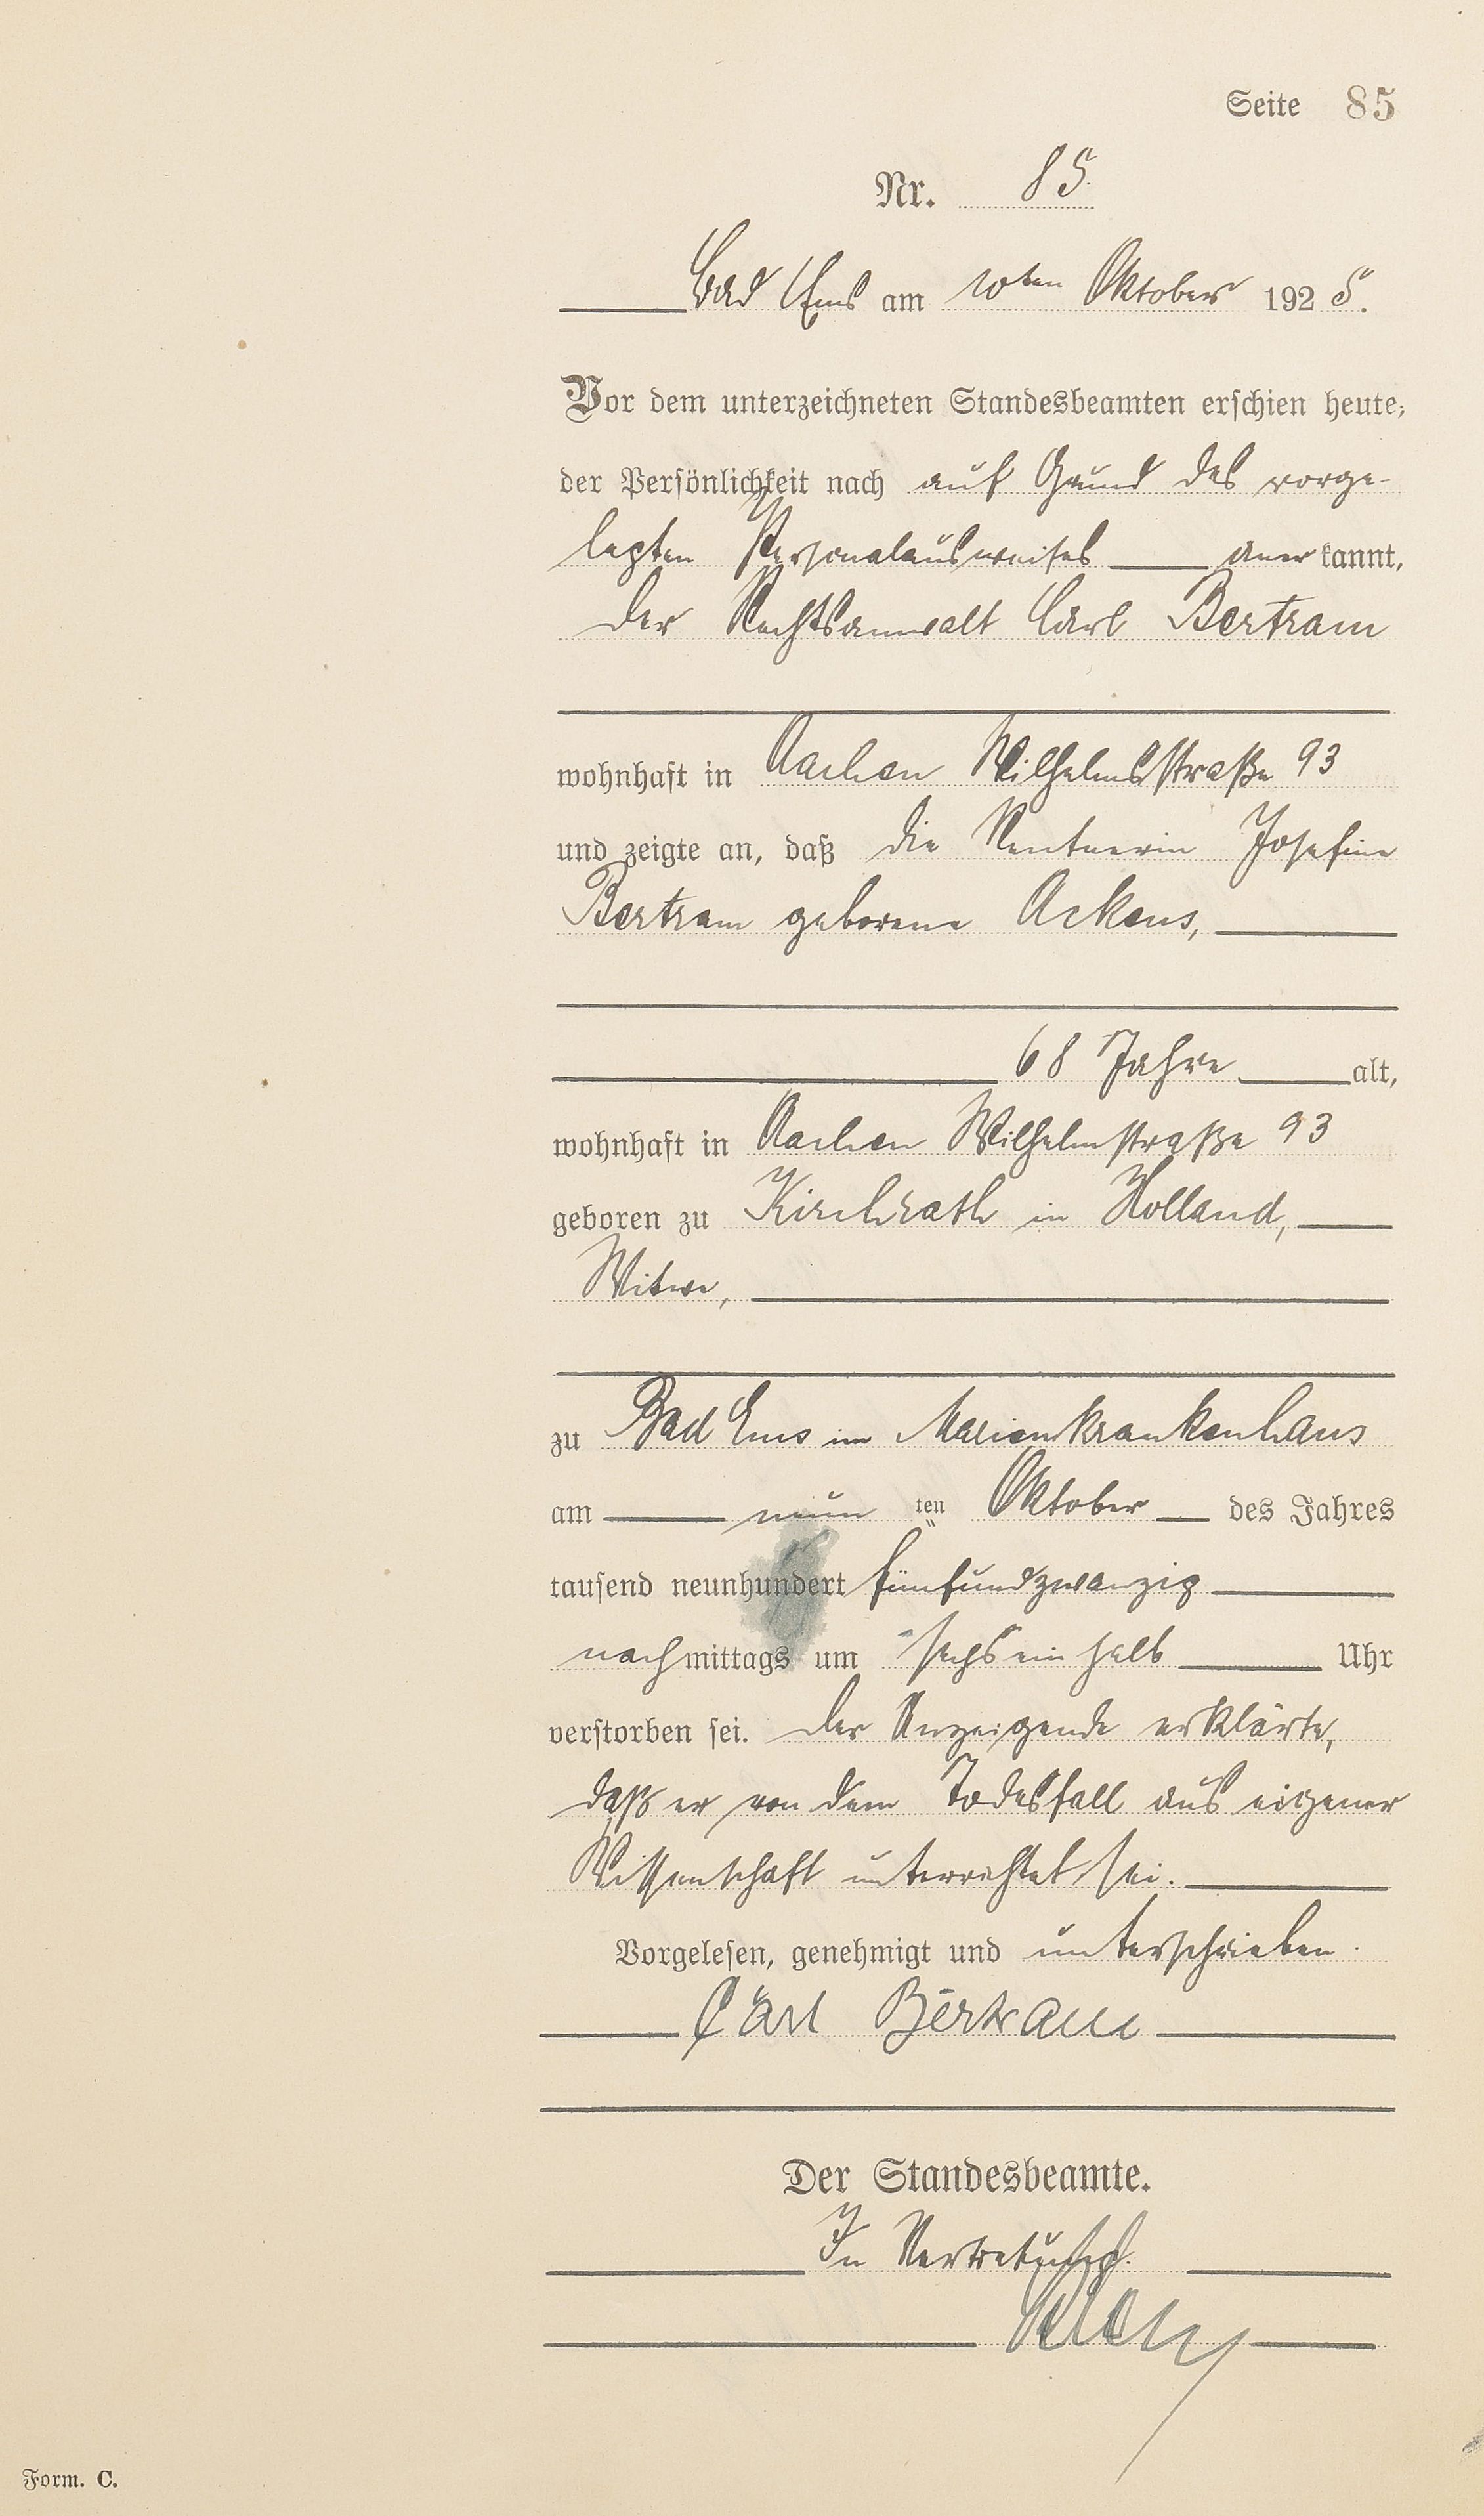 Seite 85
Nr. 85.
Bad Ems am 10ten Oktober 1925.
Vor dem unterzeichneten Standesbeamten erschien heute,
der Persönlichkeit nach auf Grund des vorge-
legten Personalausweises anerkannt,
der Rechtsanwalt Carl Bertram
wohnhaft in Aachen Wilhelmsstraße 93
und zeigte an, daß die Rentnerin Josefine
Bertram geborene Ackens,
68 Jahre alt,
wohnhaft in Aachen Wilhelmstraße 93
geboren zu Kirchrath in Holland,
Witwe,
zu Bad Ems im Marienkrankenhaus
am neun ten Oktober des Jahres
tausend neunhundert fünfundzwanzig
nachmittags um sechs ein halb Uhr
verstorben sei. Der Anzeigende erklärte,
daß er von dem Todesfall aus eigener
Wissenschaft unterrichtet sei.
Vorgelesen, genehmigt und unterschrieben.
Carl Bertram
Der Standesbeamte.
In Vertretung.
Form. C.